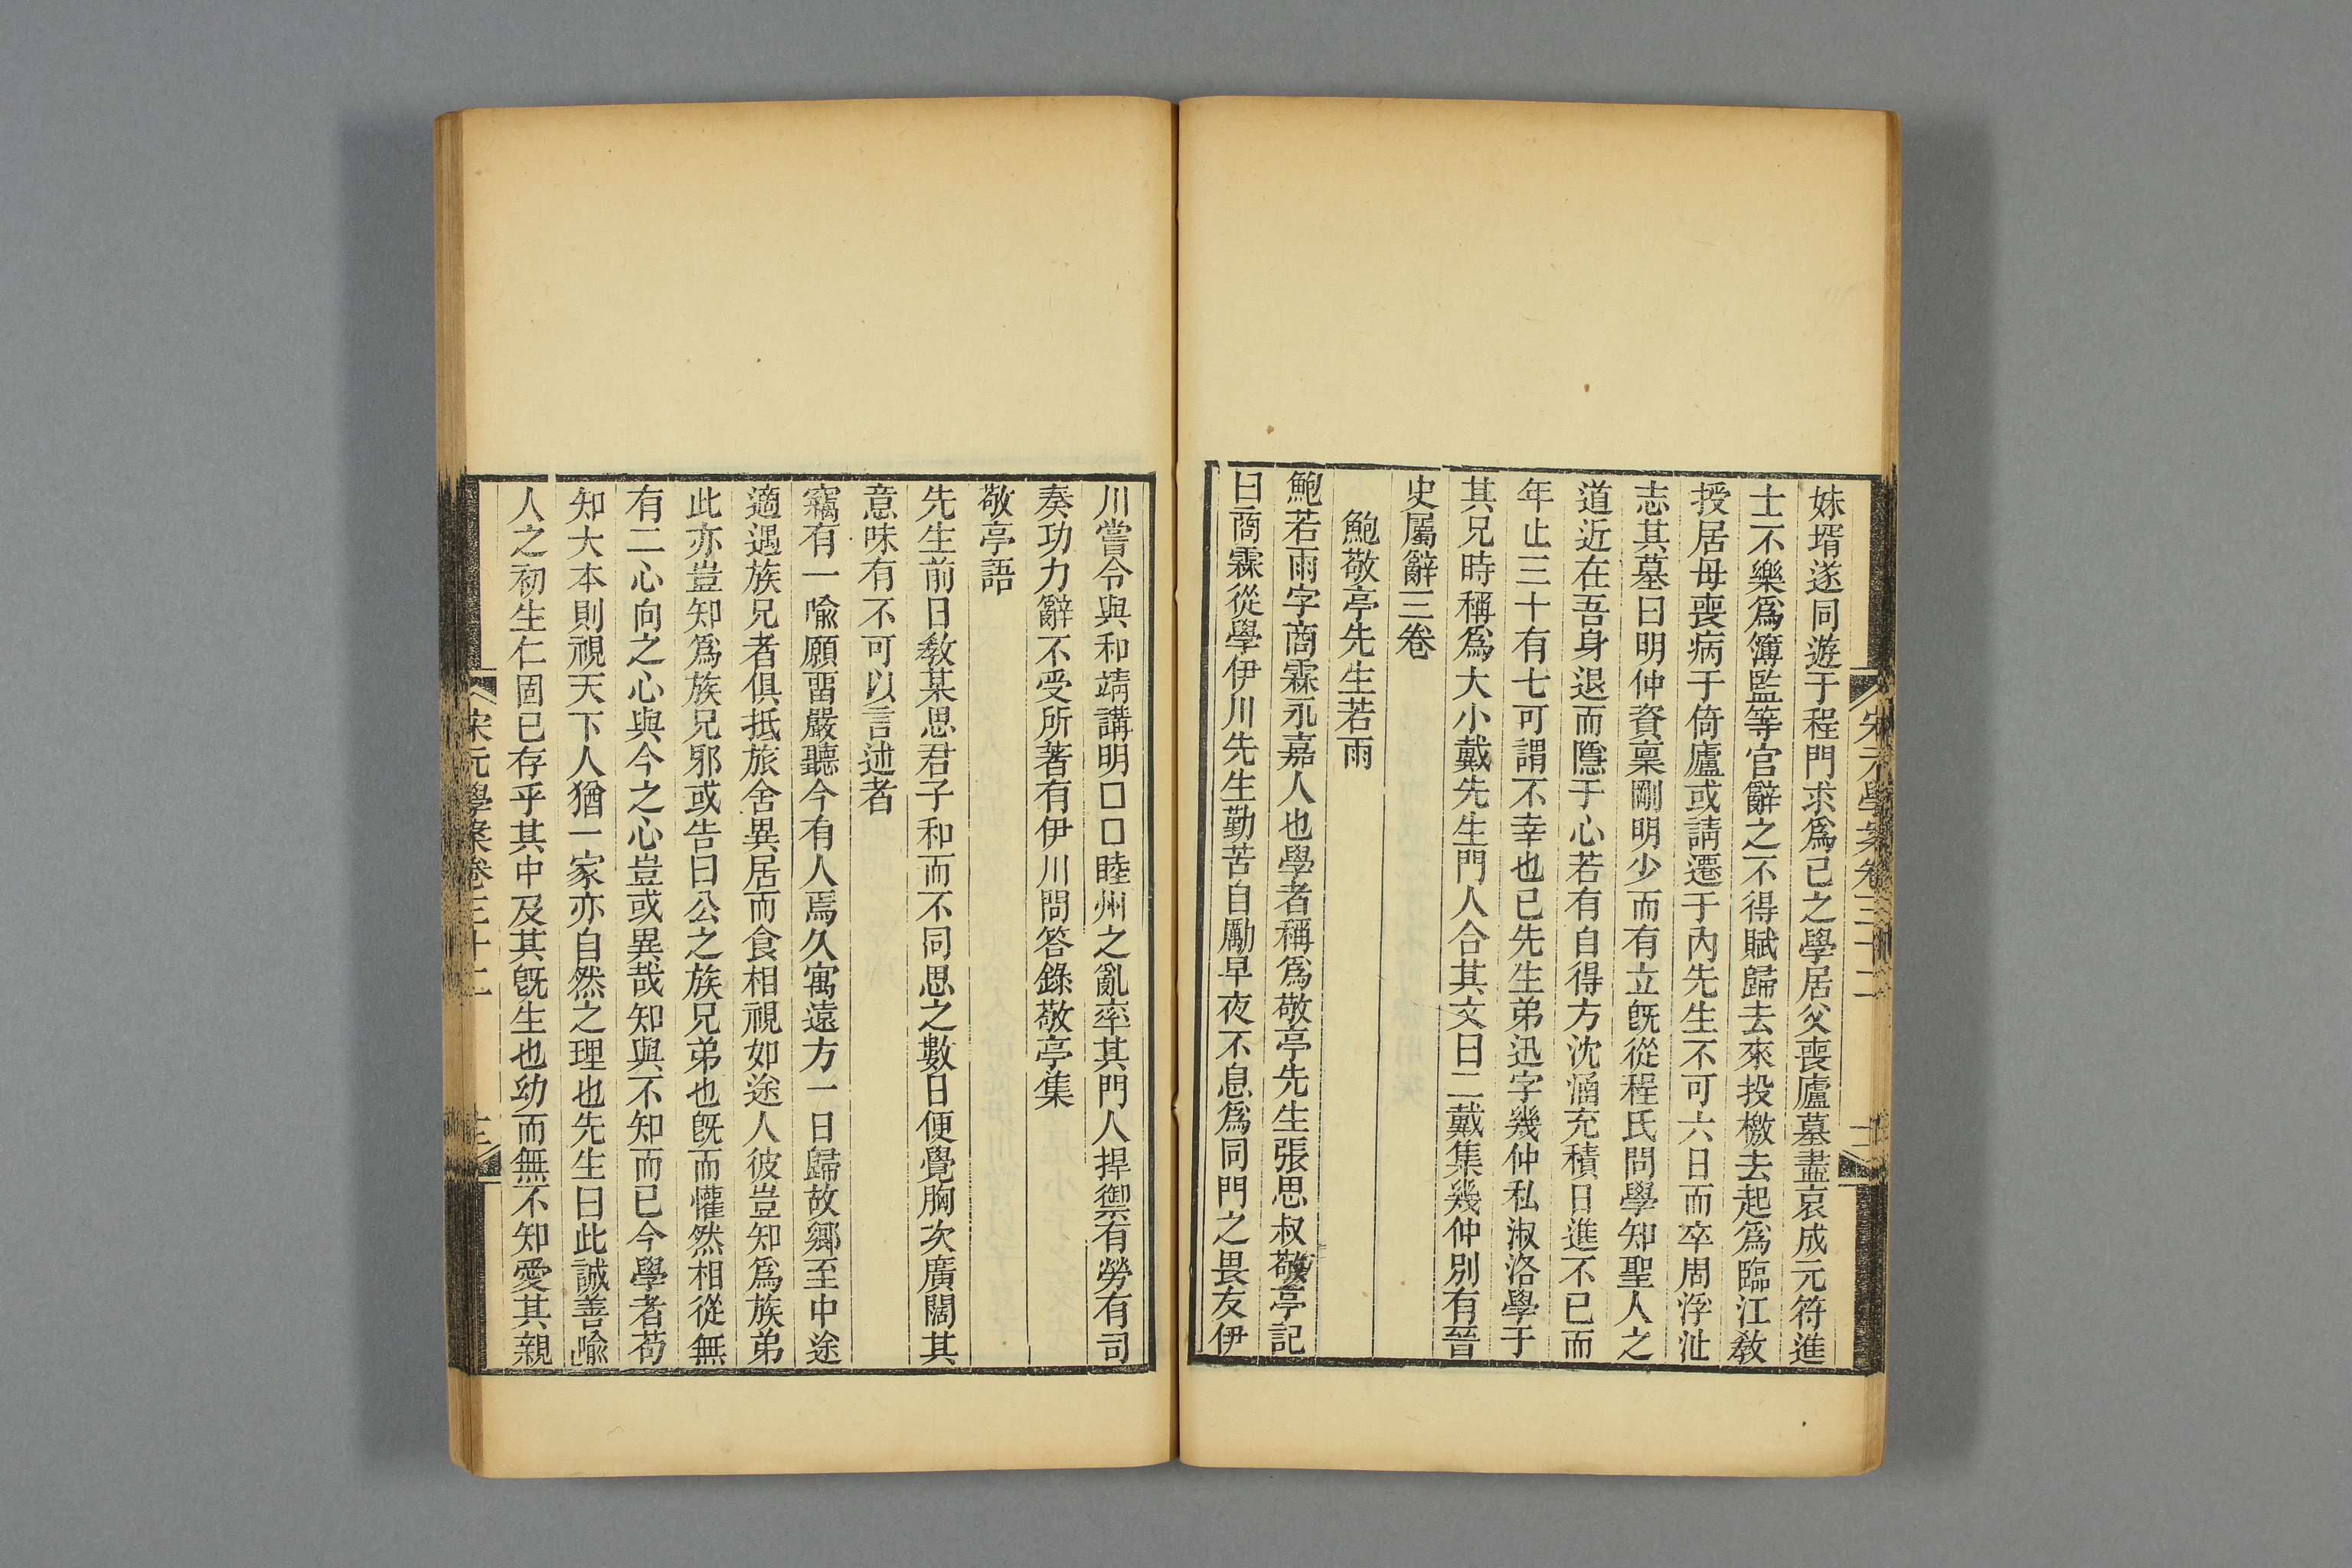 宋元學案卷三十二
十二
妹壻遂同遊于程門求爲已之學居父喪廬墓盡哀成元符進
士不樂爲簿監等官辭之不得賦歸去來投檄去起爲臨江敎
授居母喪病于倚廬或請遷于內先生不可六日而卒周浮沚
志其墓曰明仲資稟剛明少而有立旣從程氏問學知聖人之
道近在吾身退而隱于心若有自得方沈涵充積日進不已而
年止三十有七可謂不幸也已先生弟迅字幾仲私淑洛學于
其兄時稱爲大小戴先生門人合其文曰二戴集幾仲別有晉
史屬辭三卷
鮑敬亭先生若雨
鮑若雨字商霖永嘉人也學者稱爲敬亭先生張思叔敬亭記
曰商霖從學伊川先生勤苦自勵早夜不息爲同門之畏友伊
川嘗令與和靖講明□□睦州之亂率其門人捍禦有勞有司
奏功力辭不受所著有伊川問答錄敬亭集
敬亭語
先生前日敎某思君子和而不同思之數日便覺胸次廣闊其
意味有不可以言述者
竊有一喩願畱嚴聽今有人焉久寓遠方一日歸故鄉至中途
適遇族兄者俱抵旅舍異居而食相視如途人彼豈知爲族弟
此亦豈知爲族兄邪或告曰公之族兄弟也旣而懽然相從無
有二心向之心與今之心豈或異哉知與不知而已今學者苟
知大本則視天下人猶一家亦自然之理也先生曰此誠善喩
人之初生仁固已存乎其中及其旣生也幼而無不知愛其親
宋元學案卷三十二
十三